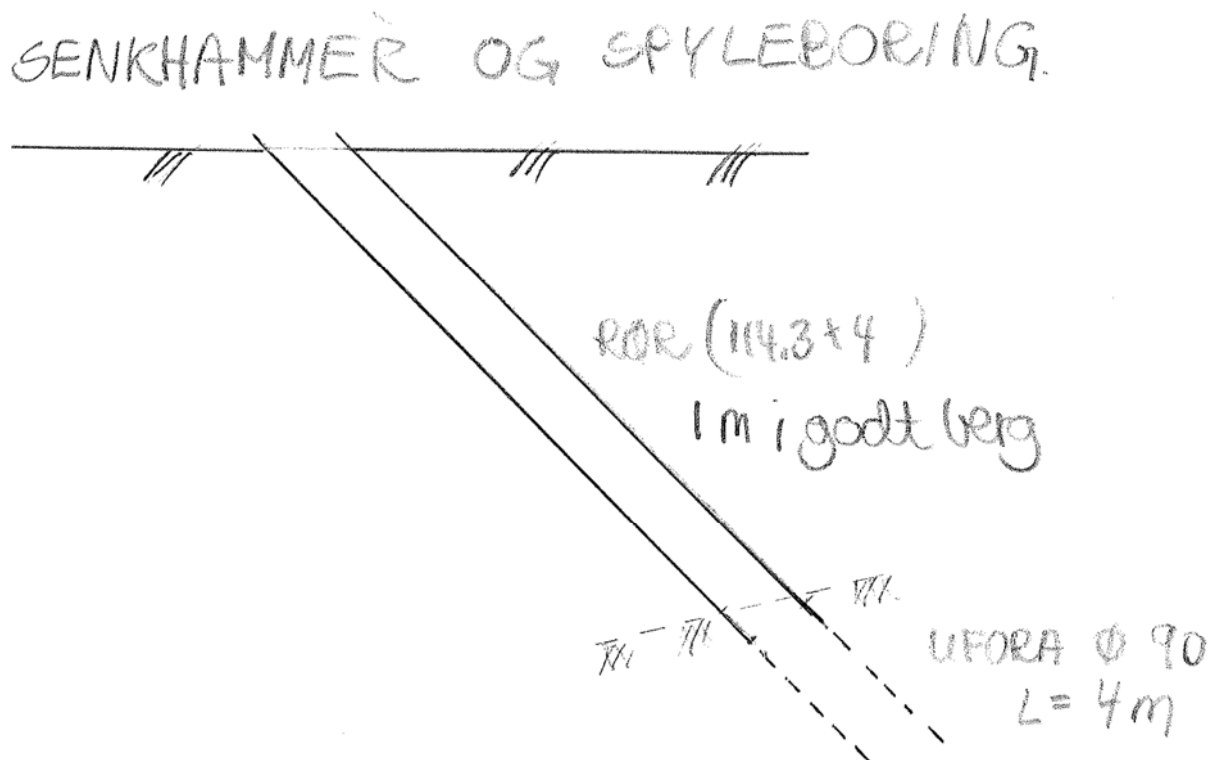 SENKHAMMER OG SPYLEBORING.
RØR (114.3+4)
1 m i godt berg
UFORA Ø 90
L= 4 m